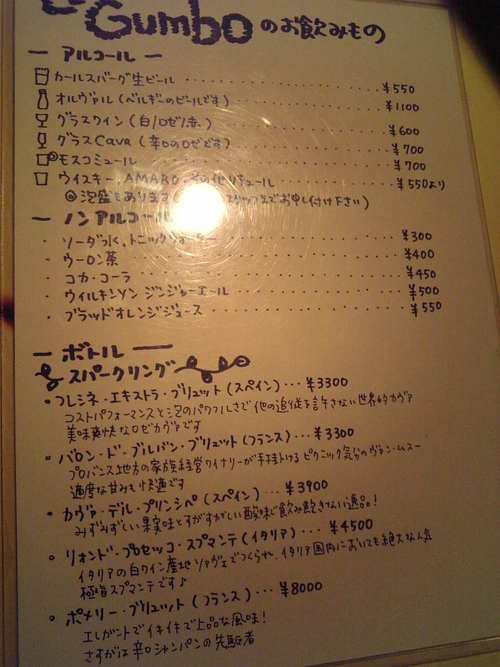 Gumbo のお飲みもの
ー アルコール ー
カールスバーグ生ビール ¥550
オルヴァル (ベルギーのビールです) ¥1100
グラスワイン (白/ロゼ/赤) ¥600
グラスCava (辛口のロゼです) ¥700
モスコミュール ¥700
ウイスキー AMARO その他リキュール ¥550より
◎ 泡盛もあります スタッフまでお申し付け下さい)
ー ノンアルコール
・ソーダ水、トニックウォーター ¥300
・ウーロン茶 ¥400
・コカ・コーラ ¥450
・ウィルキンソン ジンジャーエール ¥500
・ブラッドオレンジジュース ¥550
ー ボトル ー
スパークリング
・フレシネ・エキストラ・ブリュット (スペイン) … ¥3300
コストパフォーマンスと泡のパワフルさで他の追従を許さない世界的カヴァ
美味爽快なロゼカヴァです
・バロン・ド・ブルバン・ブリュット (フランス) … ¥3300
プロバンス地方の家族経営ワイナリーが手掛けるピクニック気分のヴァン・ムスー
適度な甘みも快適です
・カヴァ・デル・プリンシペ (スペイン) … ¥3900
みずみずしい果実味とすがすがしい酸味で飲み飽きない逸品!
・リオンド・プロセッコ・スプマンテ (イタリア) … ¥4500
イタリアの白ワイン産地ソアヴェでつくられ、イタリア国内においても絶大な人気
極旨スプマンテです♪
・ポメリー・ブリュット (フランス) … ¥8000
エレガントでイキイキで上品な風味!
さすがは辛口シャンパンの先駆者